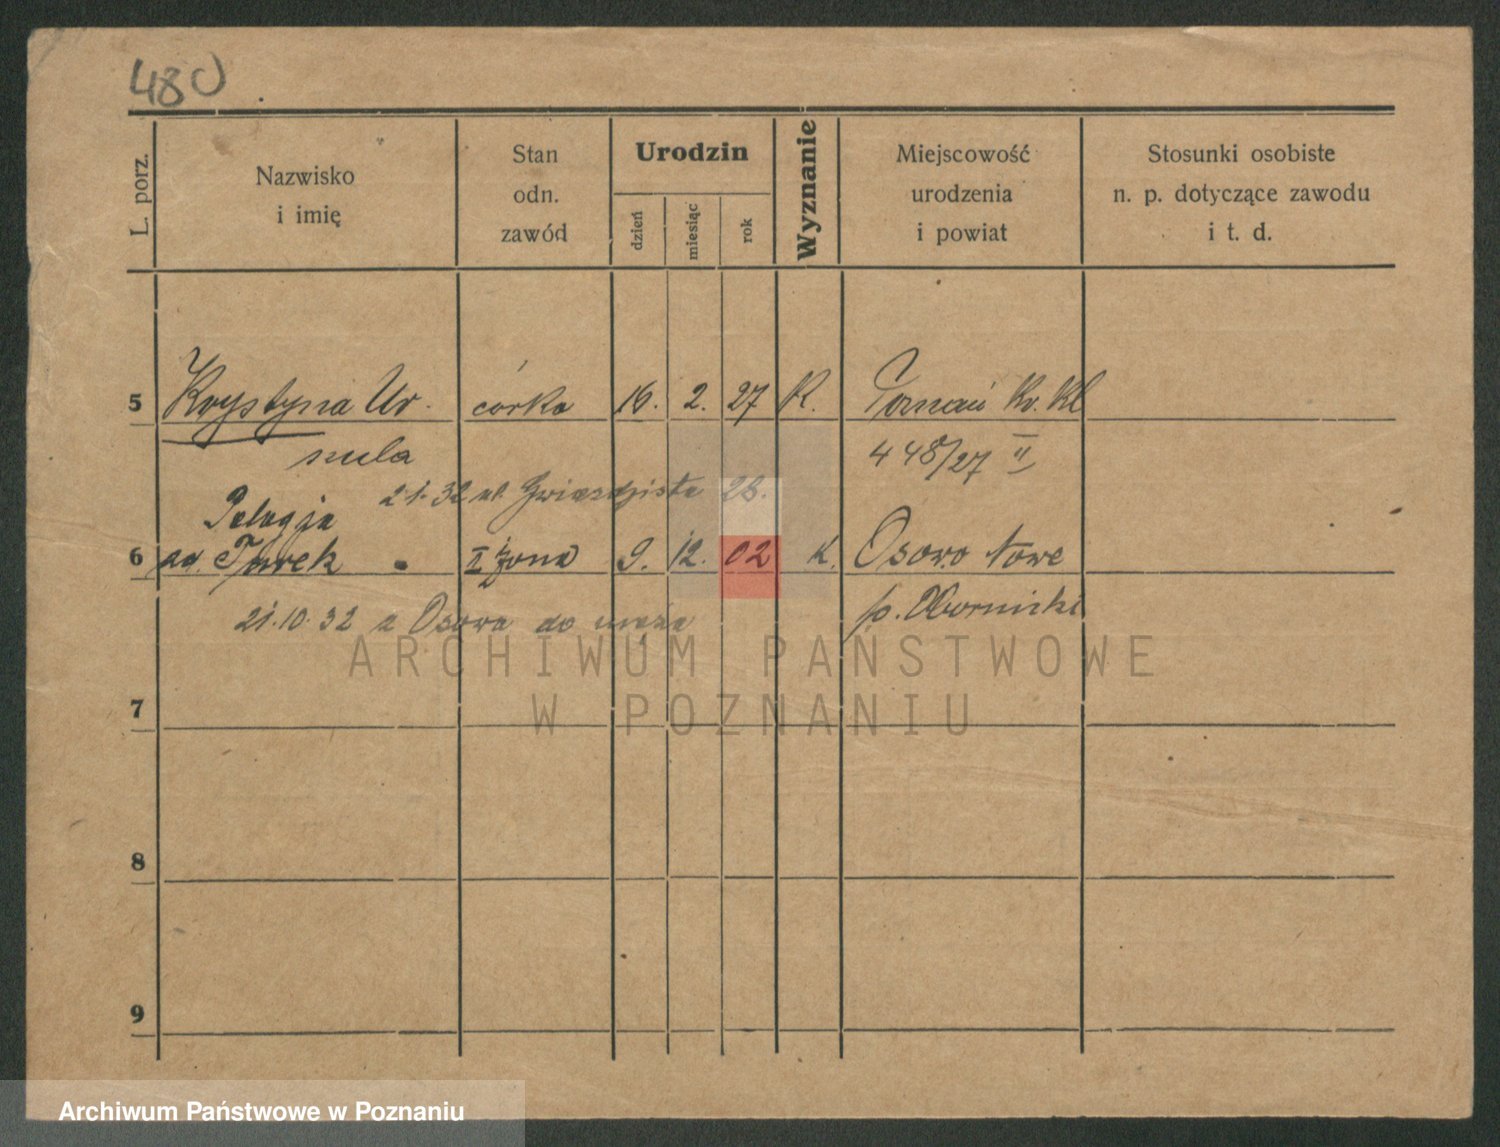 480
L. porz.
Nazwisko
i imię
Stan
odn.
zawód
Urodzin
dzień
miesiąc
rok
Wyznanie
Miejscowość
urodzenia
i powiat
Stosunki osobiste
n. p. dotyczące zawodu
i t. d.
5 Krystyna Ur- córka 16. 2. 27 K. Poznań Kr. Kl
szula 448/27 II
21. 32 ul. Gwiaździsta 28.
Pelagja
6 II żona 9. 12. 02 K. Osowo Nowe
21.10.32 z Osowa do męża p. Obornicki
ARCHIWUM PAŃSTWOWE
W POZNANIU
7
8
9
Archiwum Państwowe w Poznaniu